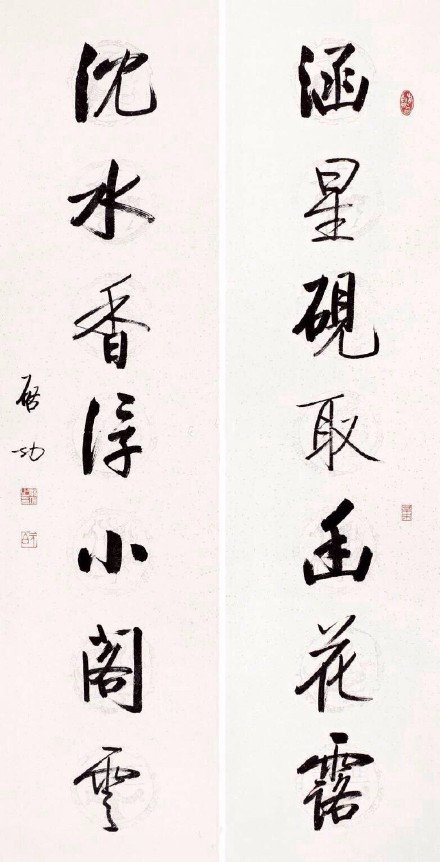 涵星硯取幽花露
沈水香浮小閣雲
啟功